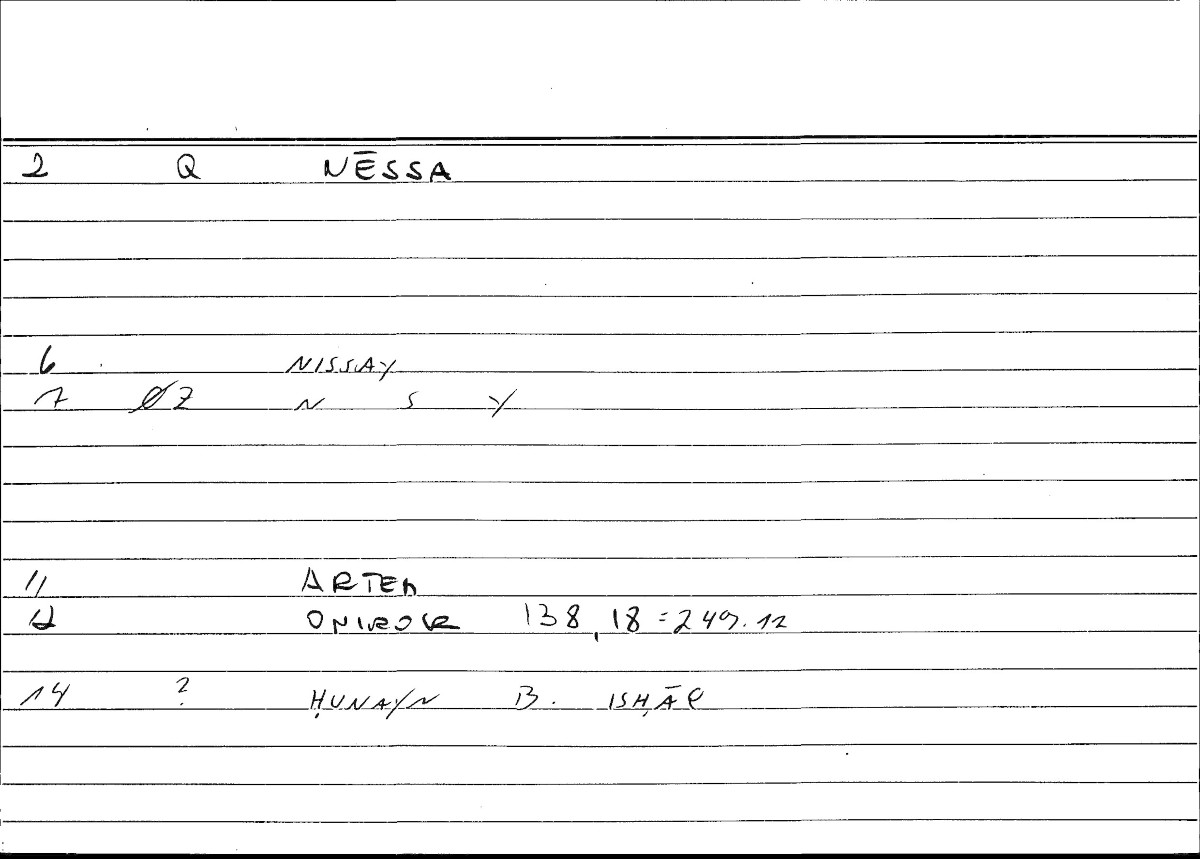 2 Q NĒSSA
6 NISSAY
7 ØZ N S Y
11 ARTEM
12 ONIROCR 138,18=249.12
14 ? ḤUNAYN B. ISḤĀQ